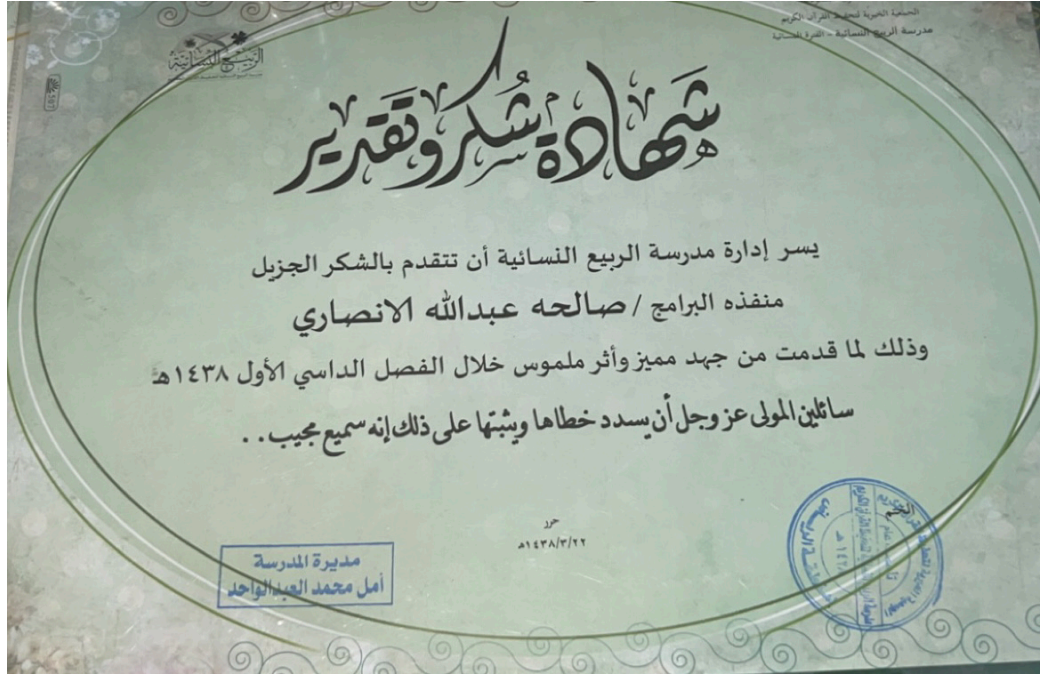 الجمعية الخيرية لتحفيظ القرآن الكريم
مدرسة الربيع النسائية - الفترة المسائية
الربيع النسائية
شهادة شكر وتقدير
يسر إدارة مدرسة الربيع النسائية أن تتقدم بالشكر الجزيل
منفذه البرامج / صالحه عبدالله الانصاري
وذلك لما قدمت من جهد مميز وأثر ملموس خلال الفصل الداسي الأول ١٤٣٨هـ
سائلين المولى عز وجل أن يسدد خطاها ويثبتها على ذلك إنه سميع مجيب . .
حرر
١٤٣٨/٣/٢٢هـ
الختم
مديرة المدرسة
أمل محمد العبدالواحد